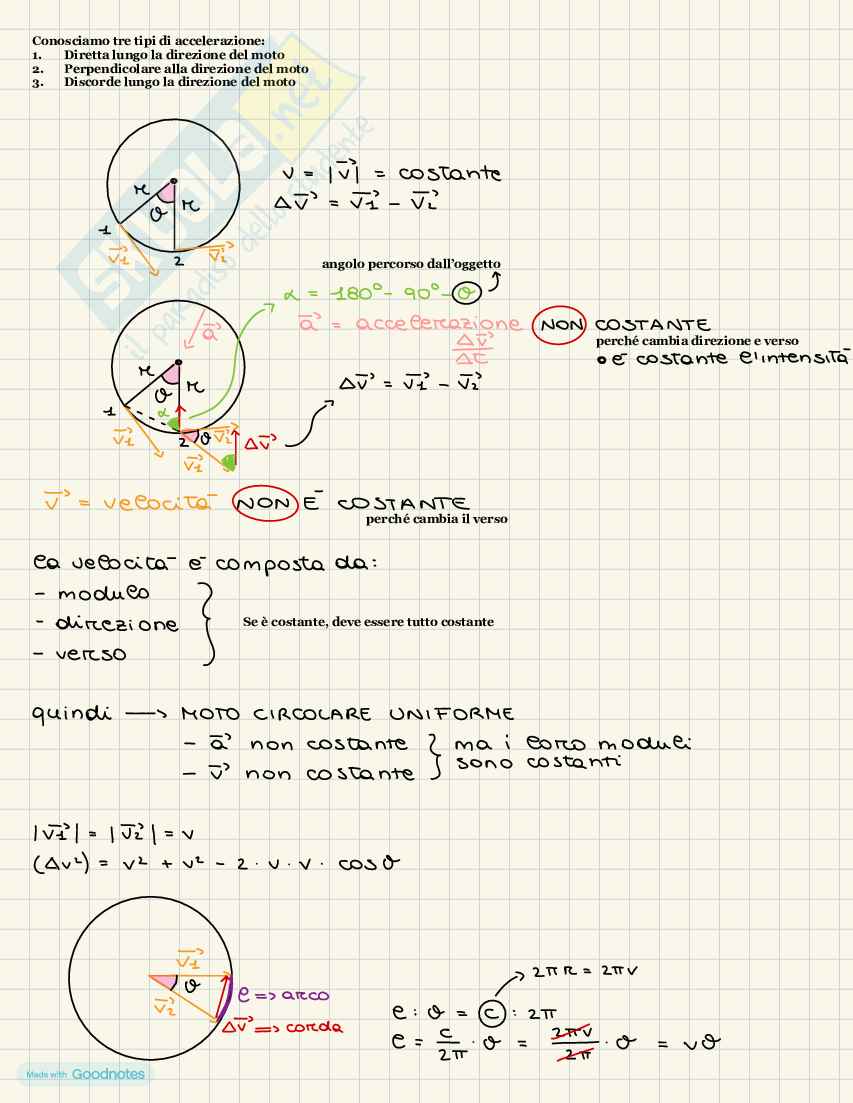 Conosciamo tre tipi di accelerazione:
1. Diretta lungo la direzione del moto
2. Perpendicolare alla direzione del moto
3. Discorde lungo la direzione del moto
SKUOLA.net
il paradiso dello studente
r θ r
1 2
v⃗1 v⃗2
v = |v⃗| = costante
Δv⃗ = v⃗1 - v⃗2
angolo percorso dall'oggetto
α = 180° - 90° - θ
a⃗ = accelerazione NON COSTANTE
Δv⃗/Δt
perché cambia direzione e verso
è costante l'intensità
a⃗
r θ r
α
1 2 θ
v⃗1 v⃗2
v⃗1
Δv⃗
Δv⃗ = v⃗1 - v⃗2
v⃗ = velocità NON È COSTANTE
perché cambia il verso
la velocità è composta da:
- modulo
- direzione
- verso
Se è costante, deve essere tutto costante
quindi → MOTO CIRCOLARE UNIFORME
- a⃗ non costante } ma i loro moduli
- v⃗ non costante } sono costanti
|v⃗1| = |v⃗2| = v
(Δv²) = v² + v² - 2 · v · v · cosθ
v⃗1
θ
v⃗2
l => arco
Δv⃗ => corda
2πr = 2πv
l : θ = c : 2π
l = c/2π · θ = 2πv/2π · θ = vθ
Made with Goodnotes